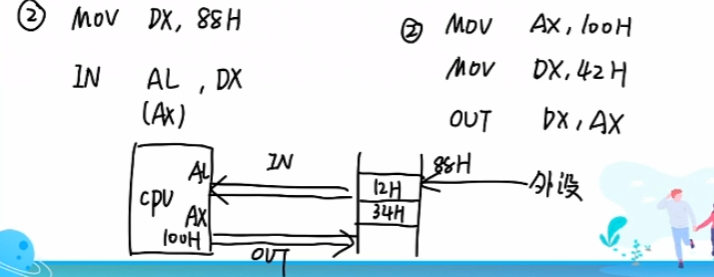 ② MOV DX, 88H
IN AL, DX
(AX)
② MOV AX, 100H
MOV DX, 42H
OUT DX, AX
CPU
AL
AX
100H
IN
OUT
12H
34H
88H
外设